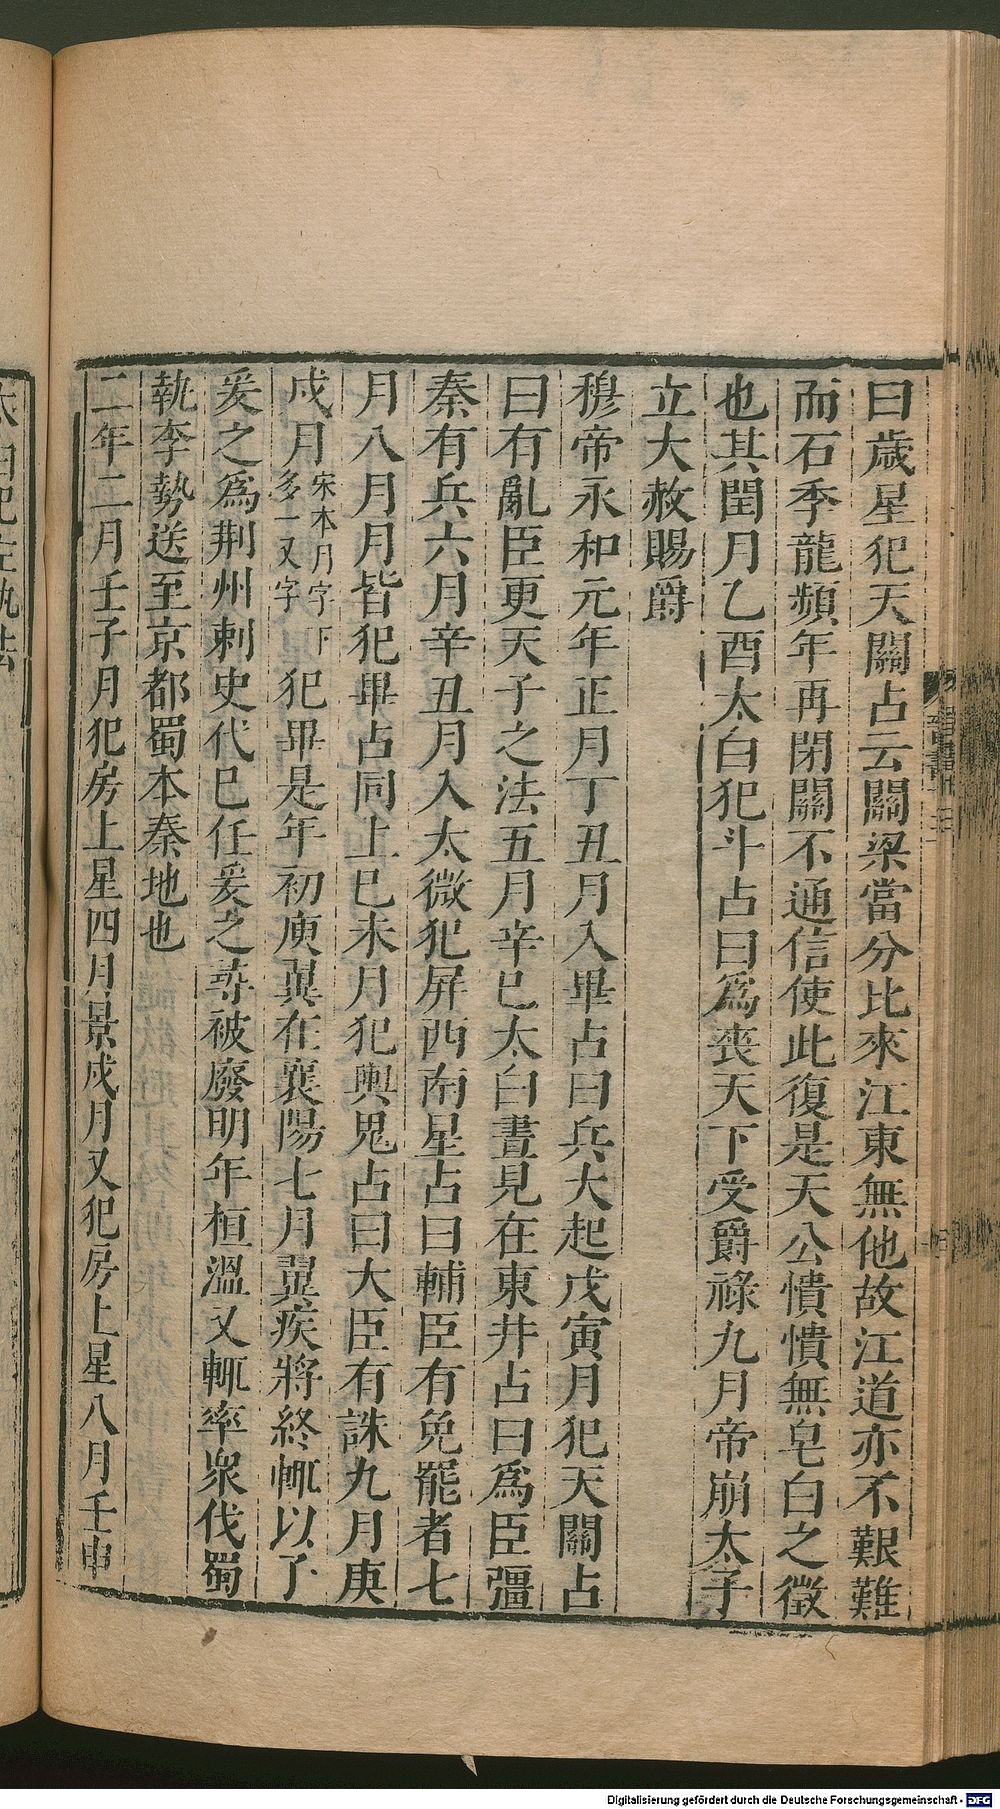 曰歲星犯天關占云關梁當分比來江東無他故江道亦不艱難
而石季龍頻年再閉關不通信使此復是天公憒憒無皂白之徵
也其閏月乙酉太白犯斗占曰爲喪天下受爵祿九月帝崩太子
立大赦賜爵
穆帝永和元年正月丁丑月入畢占曰兵大起戊寅月犯天關占
曰有亂臣更天子之法五月辛巳太白晝見在東井占曰爲臣彊
秦有兵六月辛丑月入太微犯屏西南星占曰輔臣有免罷者七
月八月月皆犯畢占同上巳未月犯輿鬼占曰大臣有誅九月庚
戌月宋本月字下多一又字犯畢是年初庾翼在襄陽七月翼疾將終輒以子
爰之爲荆州刺史代巳任爰之尋被廢明年桓溫又輒率衆伐蜀
執李勢送至京都蜀本秦地也
二年二月壬子月犯房上星四月景戌月又犯房上星八月壬申
太白犯左執法
晉書
Digitalisierung gefördert durch die Deutsche Forschungsgemeinschaft - DFG